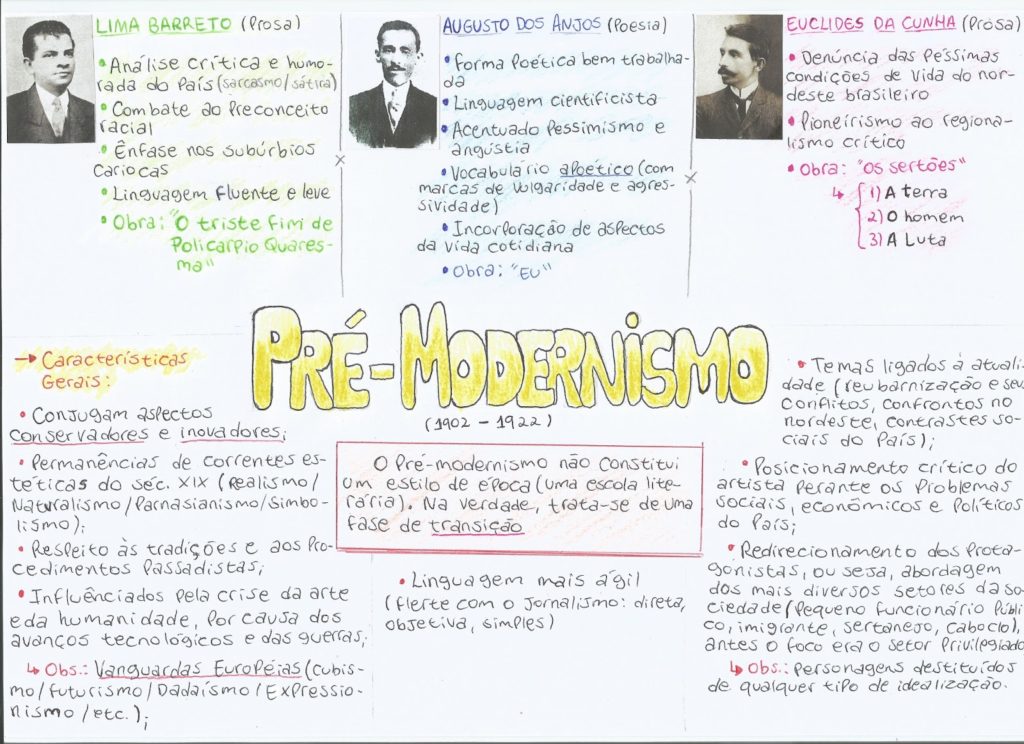 LIMA BARRETO (Prosa)
• Análise crítica e humo-
rada do País (sarcasmo/sátira)
• Combate ao Preconceito
racial
• Ênfase nos subúrbios
cariocas
• Linguagem fluente e leve
• Obra: "O triste fim de
Policarpio Quares-
ma"
AUGUSTO DOS ANJOS (Poesia)
• Forma Poética bem trabalha-
da
• Linguagem cientificista
• Acentuado Pessimismo e
angústia
• Vocabulário apoético (com
marcas de vulgaridade e agres-
sividade)
• Incorporação de aspectos
da vida cotidiana
• Obra: "EU"
EUCLIDES DA CUNHA (Prosa)
• Denúncia das Péssimas
condições de vida do nor-
deste brasileiro
• Pioneirismo ao regiona-
lismo crítico
• Obra: "Os sertões"
↳ 1) A terra
2) O homem
3) A Luta
PRÉ-MODERNISMO
(1902 - 1922)
O Pré-modernismo não constitui
um estilo de época (uma escola lite-
rária). Na verdade, trata-se de uma
fase de transição
→ Características
Gerais:
• Conjugam aspectos
conservadores e inovadores;
• Permanências de correntes es-
téticas do séc. XIX (Realismo/
Naturalismo/Parnasianismo/Simbo-
lismo);
• Respeito às tradições e aos Pro-
cedimentos Passadistas;
• Influênciados pela crise da arte
e da humanidade, por causa dos
avanços tecnológicos e das gueras;
↳ Obs.: Vanguardas Européias (cubis-
mo/futurismo/Dadaísmo/Expressio-
nismo/etc.);
• Linguagem mais ágil
(flerte com o Jornalismo: direta,
objetiva, simples)
• Temas ligados à atuali-
dade (reubarnização e seu
conflitos, confrontos no
nordeste, contrastes so-
ciais do País);
• Posicionamento crítico do
artista perante os Problemas
sociais, econômicos e Políticos
do País;
• Redirecionamento dos Prota-
gonistas, ou seja, abordagem
dos mais diversos setores da so-
ciedade (Pequeno funcionário Públi-
co, imigrante, sertanejo, caboclo),
antes o foco era o setor Privilegiado
↳ Obs.: Personagens destituídos
de qualquer tipo de idealização.